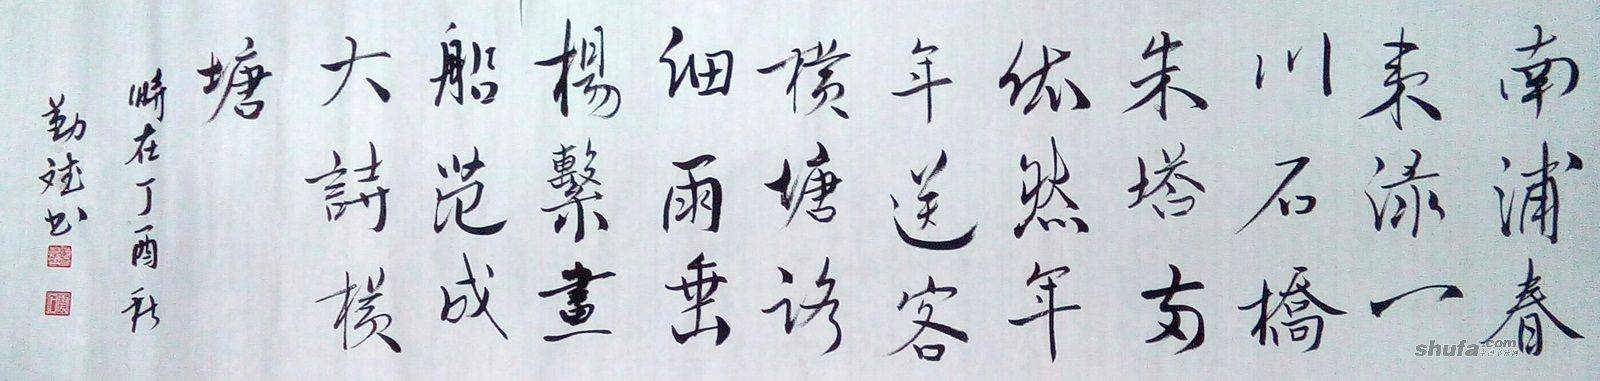 南浦春
来渌一
川石橋
朱塔两
依然年
年送客
横塘路
细雨垂
楊繫畫
船范成
大詩横
塘
時在丁酉秋
勤斌书
shufa.com